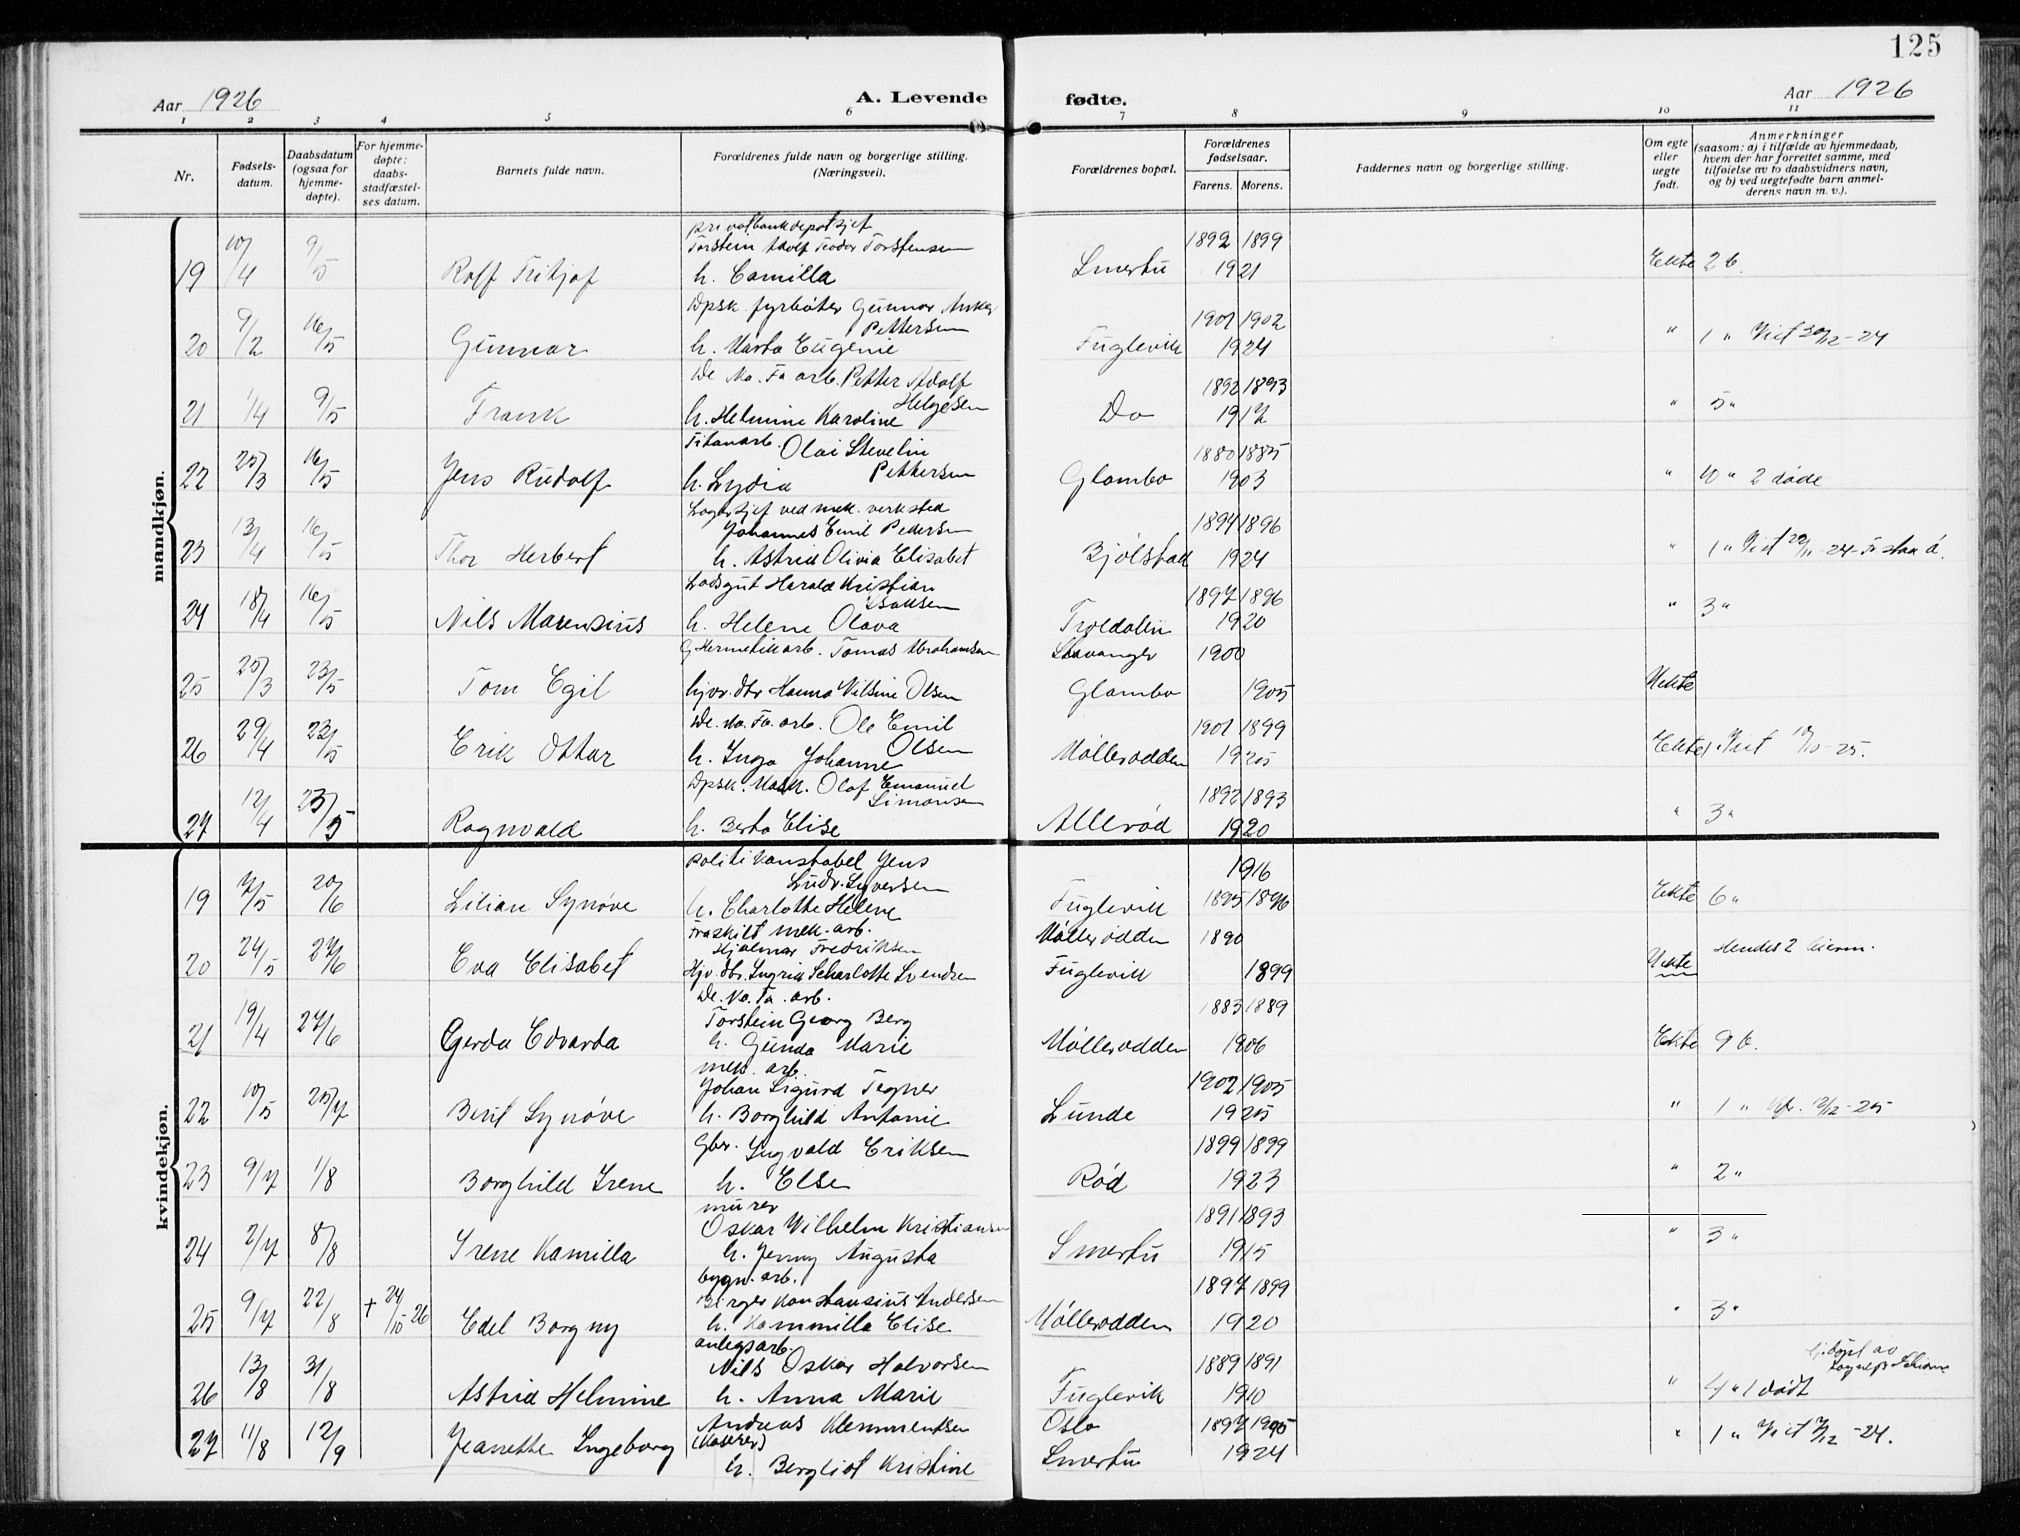 125
Aar 1926 A. Levende fødte. Aar 1926
1 2 3 4 5 6 7 8 9 10 11
Nr.
Fødsels-
datum.
Daabsdatum
(ogsaa for
hjemme-
døpte).
For hjemme-
døpte:
daabs-
stadfæstel-
ses datum.
Barnets fulde navn.
Forældrenes fulde navn og borgerlige stilling.
(Næringsvei).
Forældrenes bopæl.
Forældrenes
fødselsaar.
Farens. Morens.
Faddernes navn og borgerlige stilling.
Om egte
eller
uegte
født.
Anmerkninger
(saasom: a) i tilfælde av hjemmedaab,
hvem der har forrettet samme, med
tilføielse av to daabsvidners navn,
og b) ved uegtefødte barn anmel-
derens navn m. v.).
mandkjøn.
privatbankdepotkjef
10/4 9/5 Torstein Adolf Teodor Torstensen 1892 1899
19 Rolf Fritjof h. Camilla Smertu 1921 Ekte 2 b.
Dpsk. fyrbøter Gunnar Anker
9/2 16/5 Pettersen 1901 1902
20 Gunnar h. Marta Eugenie Fuglevik 1924 " 1 " Viet 30/12-24
De No. Fa arb. Petter Adolf
1/4 9/5 Helgesen 1892 1893
21 Frank h. Helmine Karoline Do 1917 " 5 "
Titanarb. Olai Stevelin
25/3 16/5 Pettersen 1880 1885
22 Jens Rudolf h. Lydia Glombo 1903 " 10 " 2 døde
Lagersjef ved mek. verksted
13/4 16/5 Johannes Emil Pedersen 1894 1896
23 Thor Herbert h. Astrid Olivia Elisabet Bjølstad 1924 " 1 " Viet 22/11-24
Losgut Harald Kristian
18/4 16/5 Isaksen 1897 1896
24 Nils Marensius h. Helene Olava Troldalen 1920 " 3 "
G Hermetikarb. Tomas Abrahamsen Stavanger 1900
25 25/3 23/5 Tom Egil hjvr. dtr Hanna Vilsine Olsen Glombo 1905 Uekte
De. No. Fa. arb. Ole Emil
29/4 23/5 Olsen 1901 1899
26 Erik Ottar h. Inga Johanne Møllerodden 1925 Ekte 1. Viet 10/10-25.
Dpsk. Mask. Olaf Emanuel
12/4 23/5 Simonsen 1892 1893
27 Ragnvald h. Berta Elise Allerød 1920 " 3 "
kvindekjøn.
politikonstabel Jens 1916
7/5 20/6 Ludv. Syversen
19 Lilian Synøve h. Charlotte Helene Fuglevik 1895 1896 Ekte 6 "
Fraskilt mek. arb.
24/5 27/6 Hjalmar Fredriksen Møllerodden 1890 Hendes 2
20 Eva Elisabet Hjv. dtr. Ingrid Scharlotte Svendsen Fuglevik 1899 Uekte
De. No. Fa. arb.
19/4 27/6 Torstein Georg Berg 1883 1889
21 Gerda Edvarda h. Gunda Marie Møllerodden 1906 Ekte 9 b.
mek. arb.
10/5 25/7 Johan Sigurd Tegner 1902 1905
22 Berit Synøve h. Borghild Antonie Lunde 1925 " 1 "
Gbr. Ingvald Eriksen 1899 1899
23 9/7 1/8 Borghild Irene h. Else Rød 1923 " 2 "
murer
2/7 8/8 Oskar Vilhelm Kristiansen 1891 1893
24 Irene Kamilla h. Jenny Augusta Smertu 1915 " 3 "
bygn. arb.
9/7 22/8 + 24/10 26 Birger Konstansius Andersen 1897 1899
25 Edel Borgny h. Kammilla Elise Møllerodden 1920 " 3 "
anlegsarb.
13/8 31/8 Nils Oskar Halvorsen 1889 1891
26 Astrid Helmine h. Anna Marie Fuglevik 1910 " 4 " 1 dødt
Andreas Klemmentsen Oslo 1897 1905
27 11/8 12/9 Jeanette Ingeborg h. Bergliot Kristine Smertu 1924 " 1 " Viet 7/12-24.